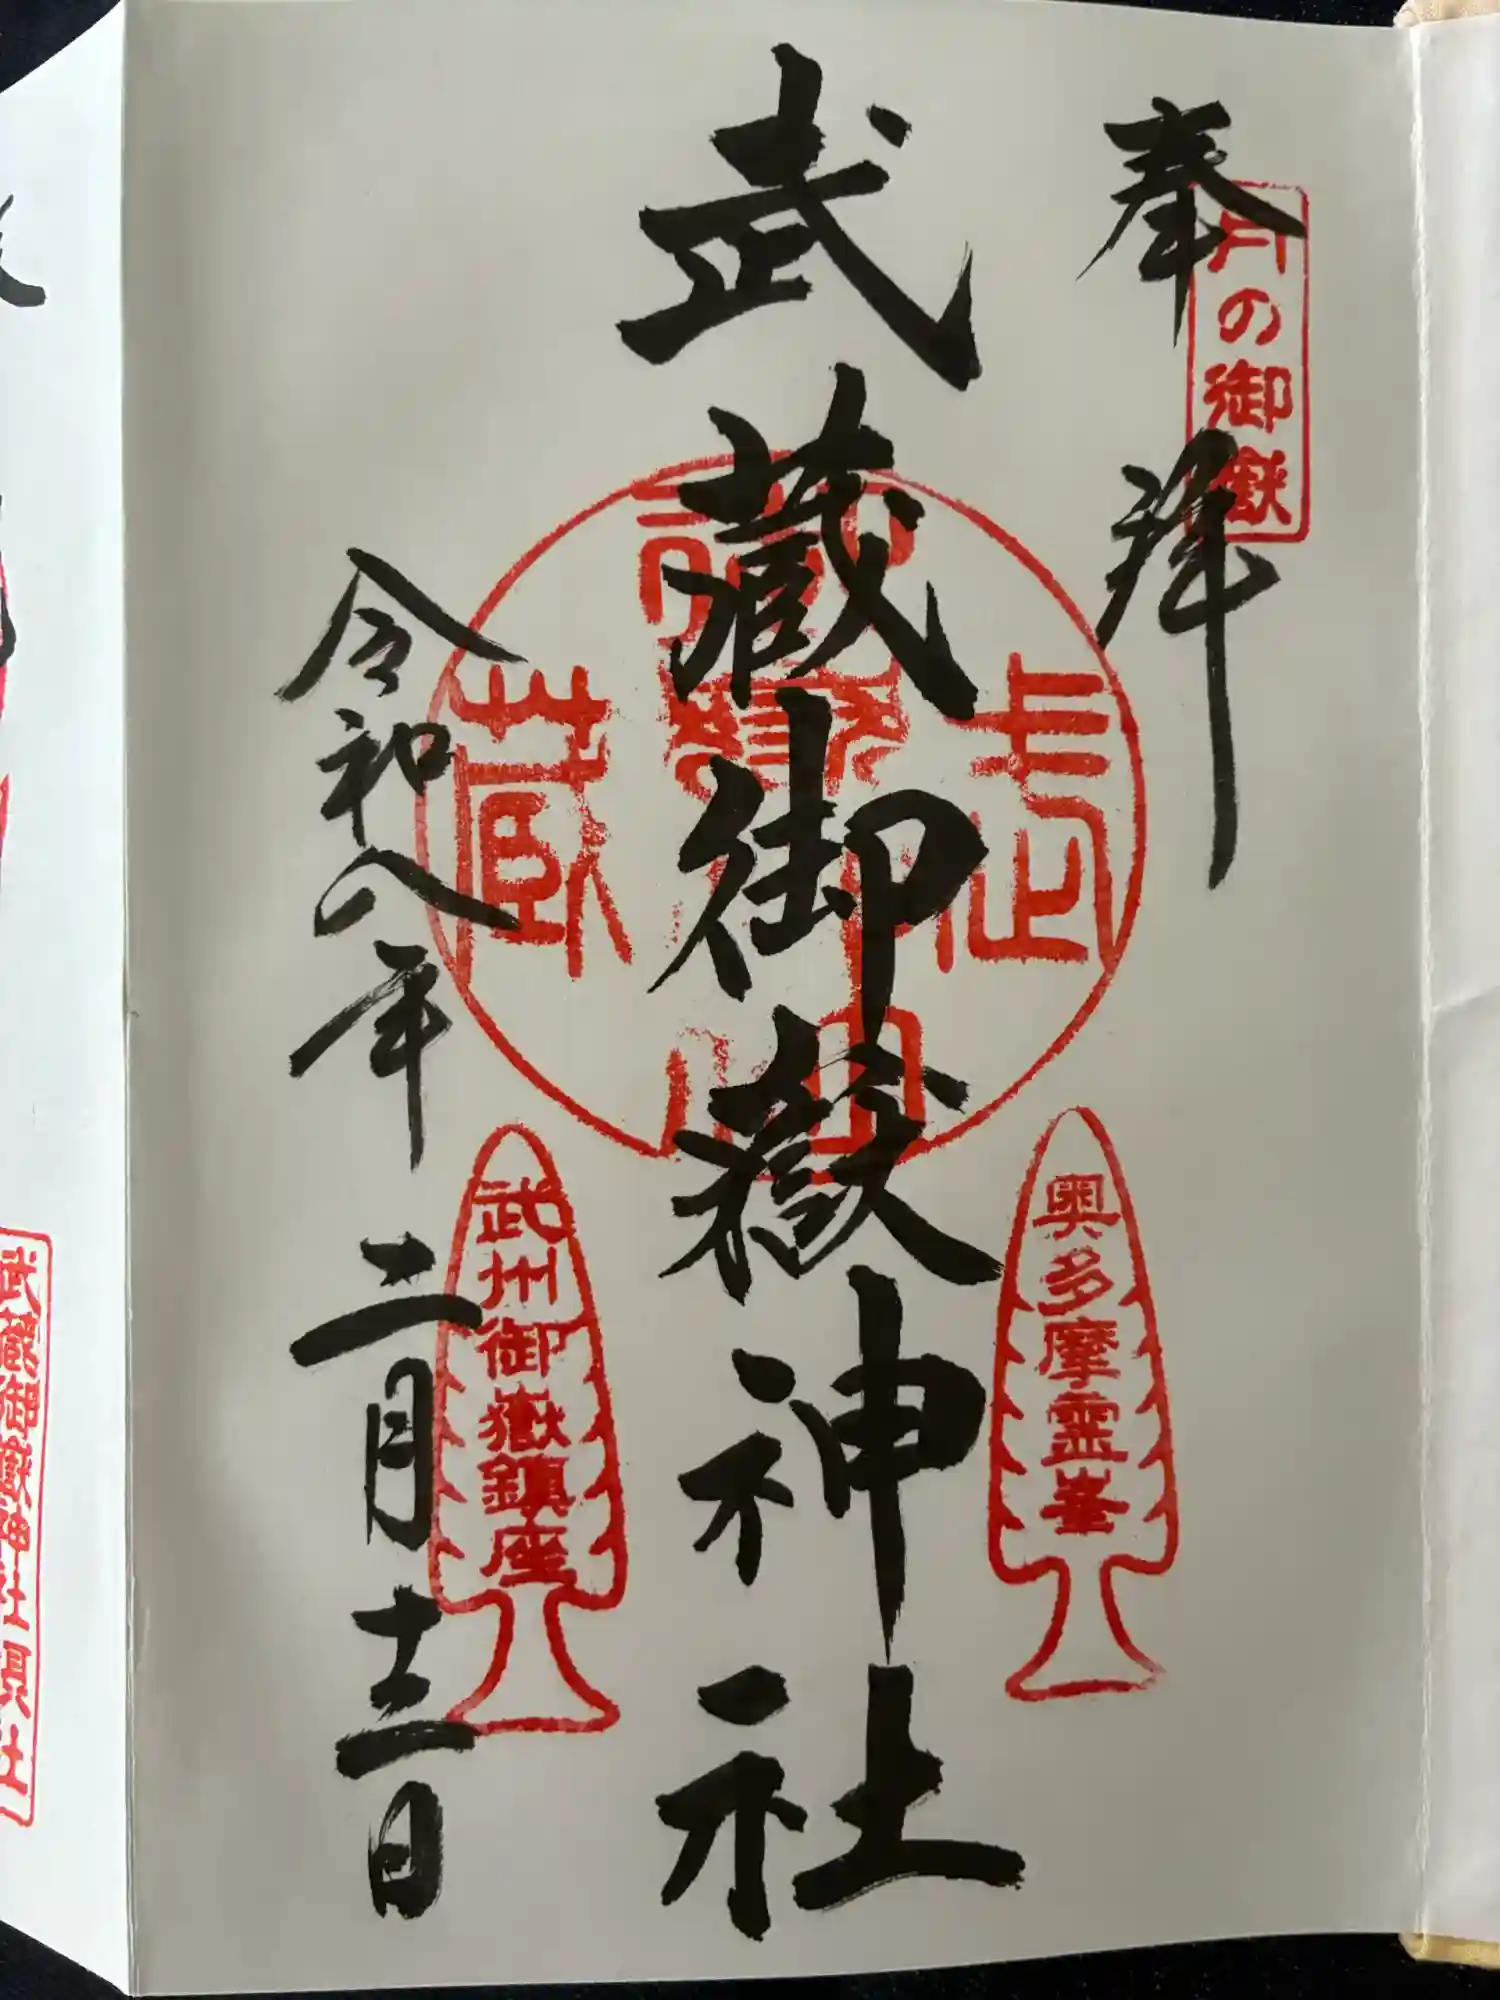 奉拝
月の御嶽
武蔵御嶽神社
武蔵
山
奥多摩霊峯
令和八年二月十三日
武州御嶽鎮座
武蔵御嶽神社